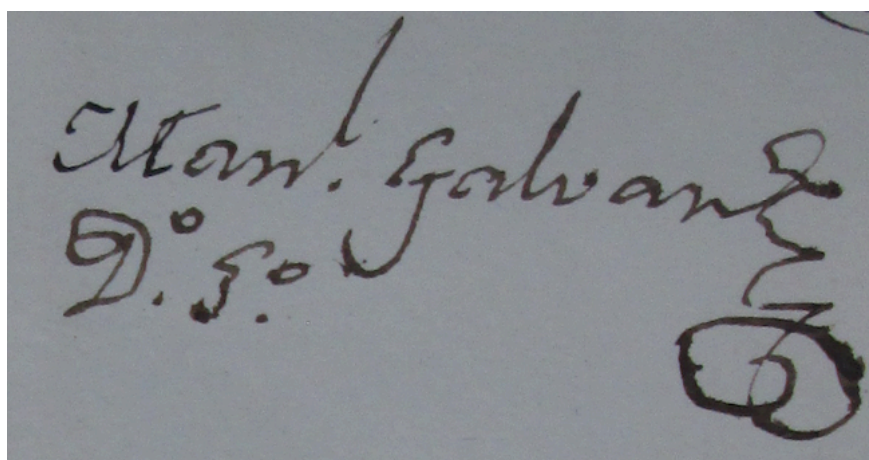 Man.l Galvan
D.o S.o